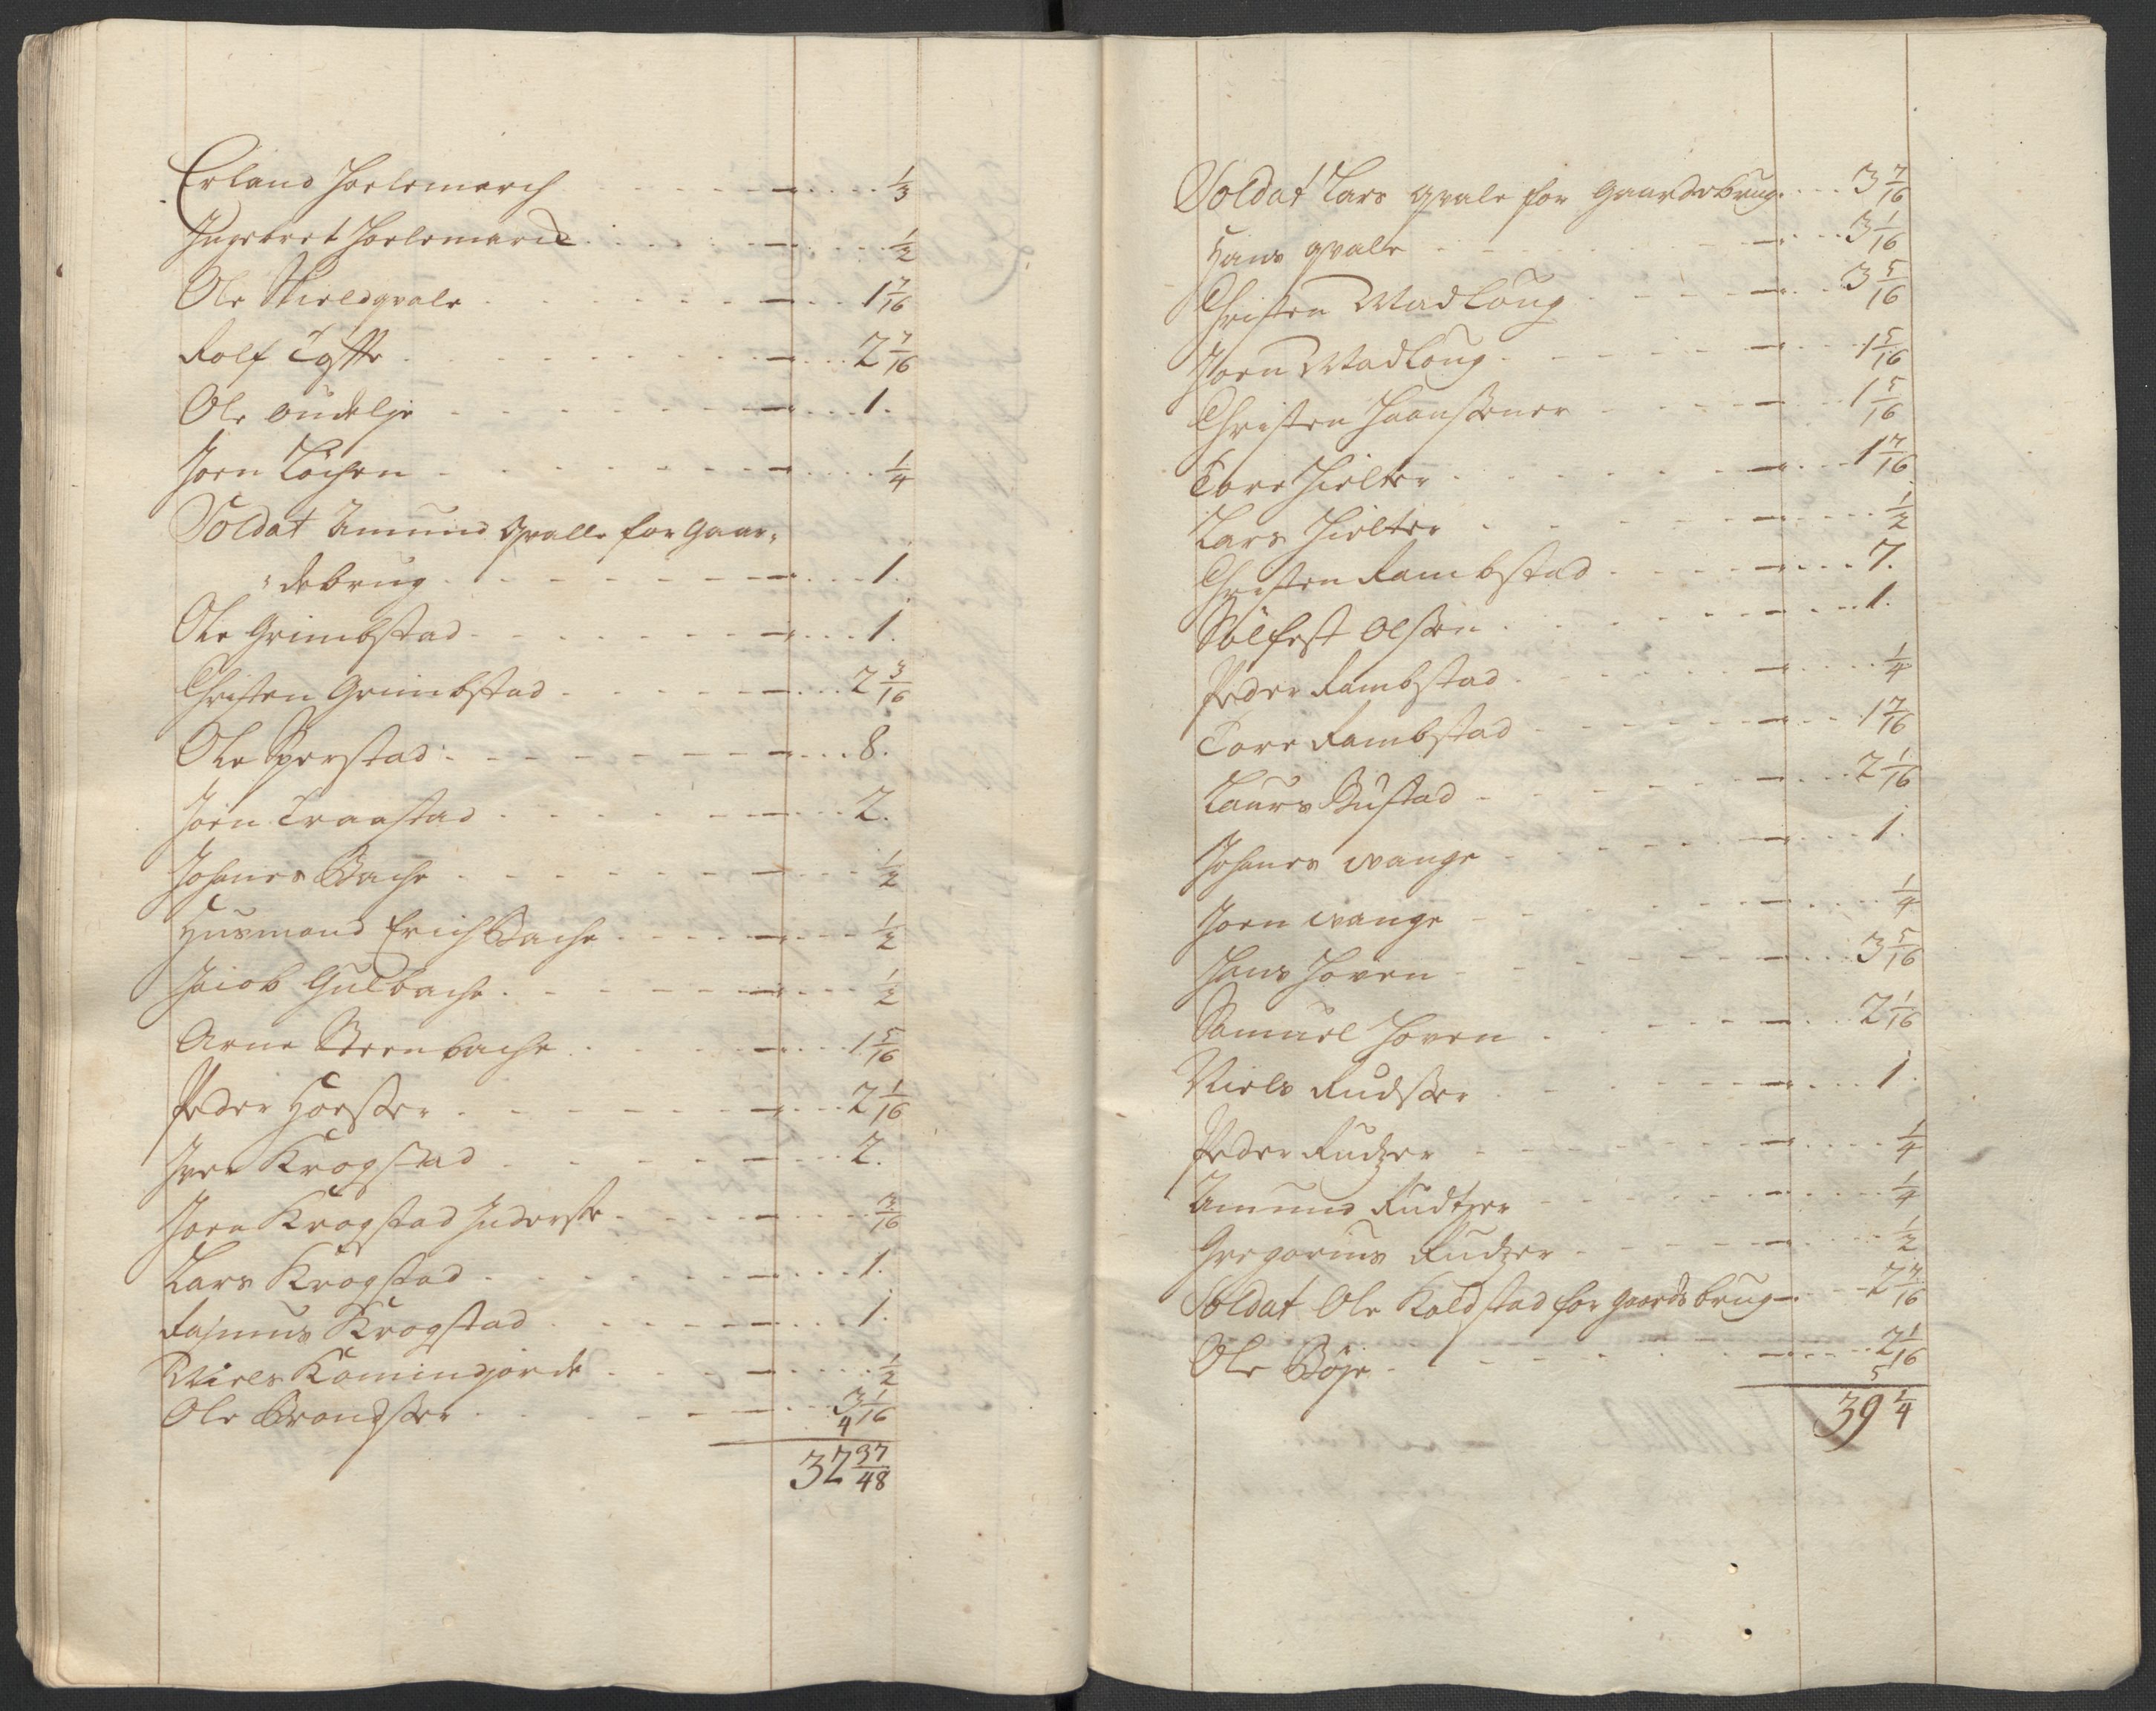 Erland Hoelemarch - - - - - - ⅓
Ingebret Hoelemarch - - - ½
Ole Skieldqvale - - - - - 1 7/16
Rolf Tofte - - - - - - 2 7/16
Ole oudelje - - - - - - 1.
Joen Löchen - - - - - - ¼
Soldat Amund Qvalle for Gaar-
debrug - - - - - - 1.
Ole Grimbstad - - - - - - 1.
Christen Grimbstad - - - - - 2 3/16
Ole Sperstad - - - - - - 8.
Joen Traastad - - - - - - 2.
Johanes Bache - - - - - - ½
Husmand Erich Bache - - - - ½
Jacob Gulbache - - - - - ½
Arne Steenbache - - - - - 1 5/16
Peder Horster - - - - - - 2 1/16
Iver Krogstad - - - - - - 2.
Joen Krogstad Inderste - - - - 3/16
Lars Krogstad - - - - - - 1.
Rasmus Krogstad - - - - - 1.
Niels Kamingjorde - - - - ½
Ole Brandster - - - - - 3 1/16
4
32 37/48
Soldat Lars qvale for Gaardebrug - - - 3 7/16
Hans qvale - - - - - - 3 1/16
Christen Wadloug - - - - - 3 5/16
Joen Wadloug - - - - - 1 5/16
Christen Haansener - - - - 1 5/16
Tore Hielter - - - - - - 1 7/16
Lars Hielter - - - - - - ½
Christen Rambstad - - - - - 7.
Sölfest Olssen - - - - - - 1.
Peder Rambstad - - - - - ¼
Tore Rambstad - - - - - 1 7/16
Laurs Bustad - - - - - - 2 1/16
Johanes wange - - - - - 1.
Joen wange - - - - - - ¼
Hans Hoven - - - - - - 3 5/16
Samuel Hoven - - - - - 2 1/16
Niels Rudster - - - - - - 1.
Peder Rudzer - - - - - - ¼
Amund Rudtzer - - - - - ¼
Gregorius Rudzer - - - - - ½
Soldat Ole Koldstad for Gaards brug - - 2 7/16
Ole Böye - - - - - - 2 1/16
5
39 ¼